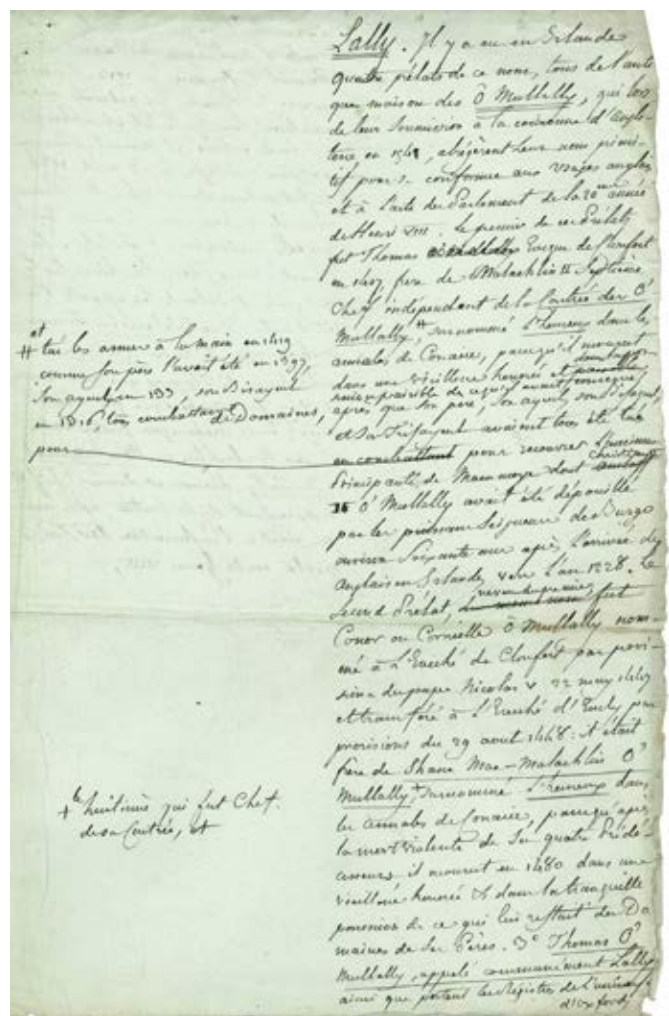 Lally. Il y a eu en Irlande
quatre prélats de ce nom, tous de l'anti
que maison des Ô Mullally, qui lors
de leur soumission à la couronne d'Angle-
terre en 1541, abrégèrent leur nom primi-
tif pour se conformer aux usages anglais
et à l'acte du Parlement de la 20me année
de Henri VIII. Le premier de ces Prélats
fut Thomas Evêque de Clonfert
en frère de Malachlin II Septième
Chef indépendant de la Contrée des O'
Mullally, # surnommé dans les
annales de Conacie, parcequ'il mourut
dans une vieillesse honorée et
paisible de ce qu'il avait
après que son père, son ayeul, son Bisayeul,
et son Trisayeul avaient tous été tués
en combattant pour recouvrer
Principauté de Maenmoye dont
O' Mullally avait été dépouillé
par les puissans Seigneurs de Burgo
environ soixante ans après l'arrivée des
Anglais en Irlande, vers l'an 1228. Le
second Prélat fut
Conor ou Corneille Ô Mullally nom-
mé à l'Evêché de Clonfert par provi-
sions du pape Nicolas V 22 may
et transféré à l'Evêché d' par
provisions du 29 aout 1448: il était
frère de Shane Mac-Malachlin O'
Mullally, + surnommé dans
les annales de Conacie, parcequ'après
la mort violente de ses quatre Prédé-
cesseurs il mourut en 1480 dans une
vieillesse honorée & dans la tranquille
possession de ce qui lui restait des Do
maines de ses Pères. 3º Thomas O'
Mullally, appelé communément Lally
ainsi que portent les Registres de l'université
d'Oxford
et
# tué les armes à la main en 1419
comme son père l'avait été en 1397,
son ayeul en son Bisayeul
en 1316, tous combattant Domaines,
pour
+ le huitième qui fut Chef
de sa Contrée, et